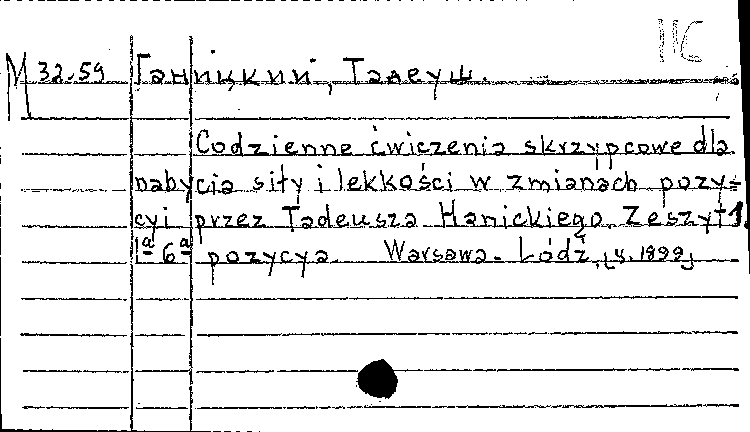 МС
М 32-59 Ганицкий, Тадеуш.
Codzienne ćwiczenia skrzypcowe dla
nabycia siły i lekkości w zmianach pozy-
cyi przez Tadeusza Hanickiego. Zeszyt 1.
1ª-6ª pozycya. Warsawa-Łódź, [ц. 1899]